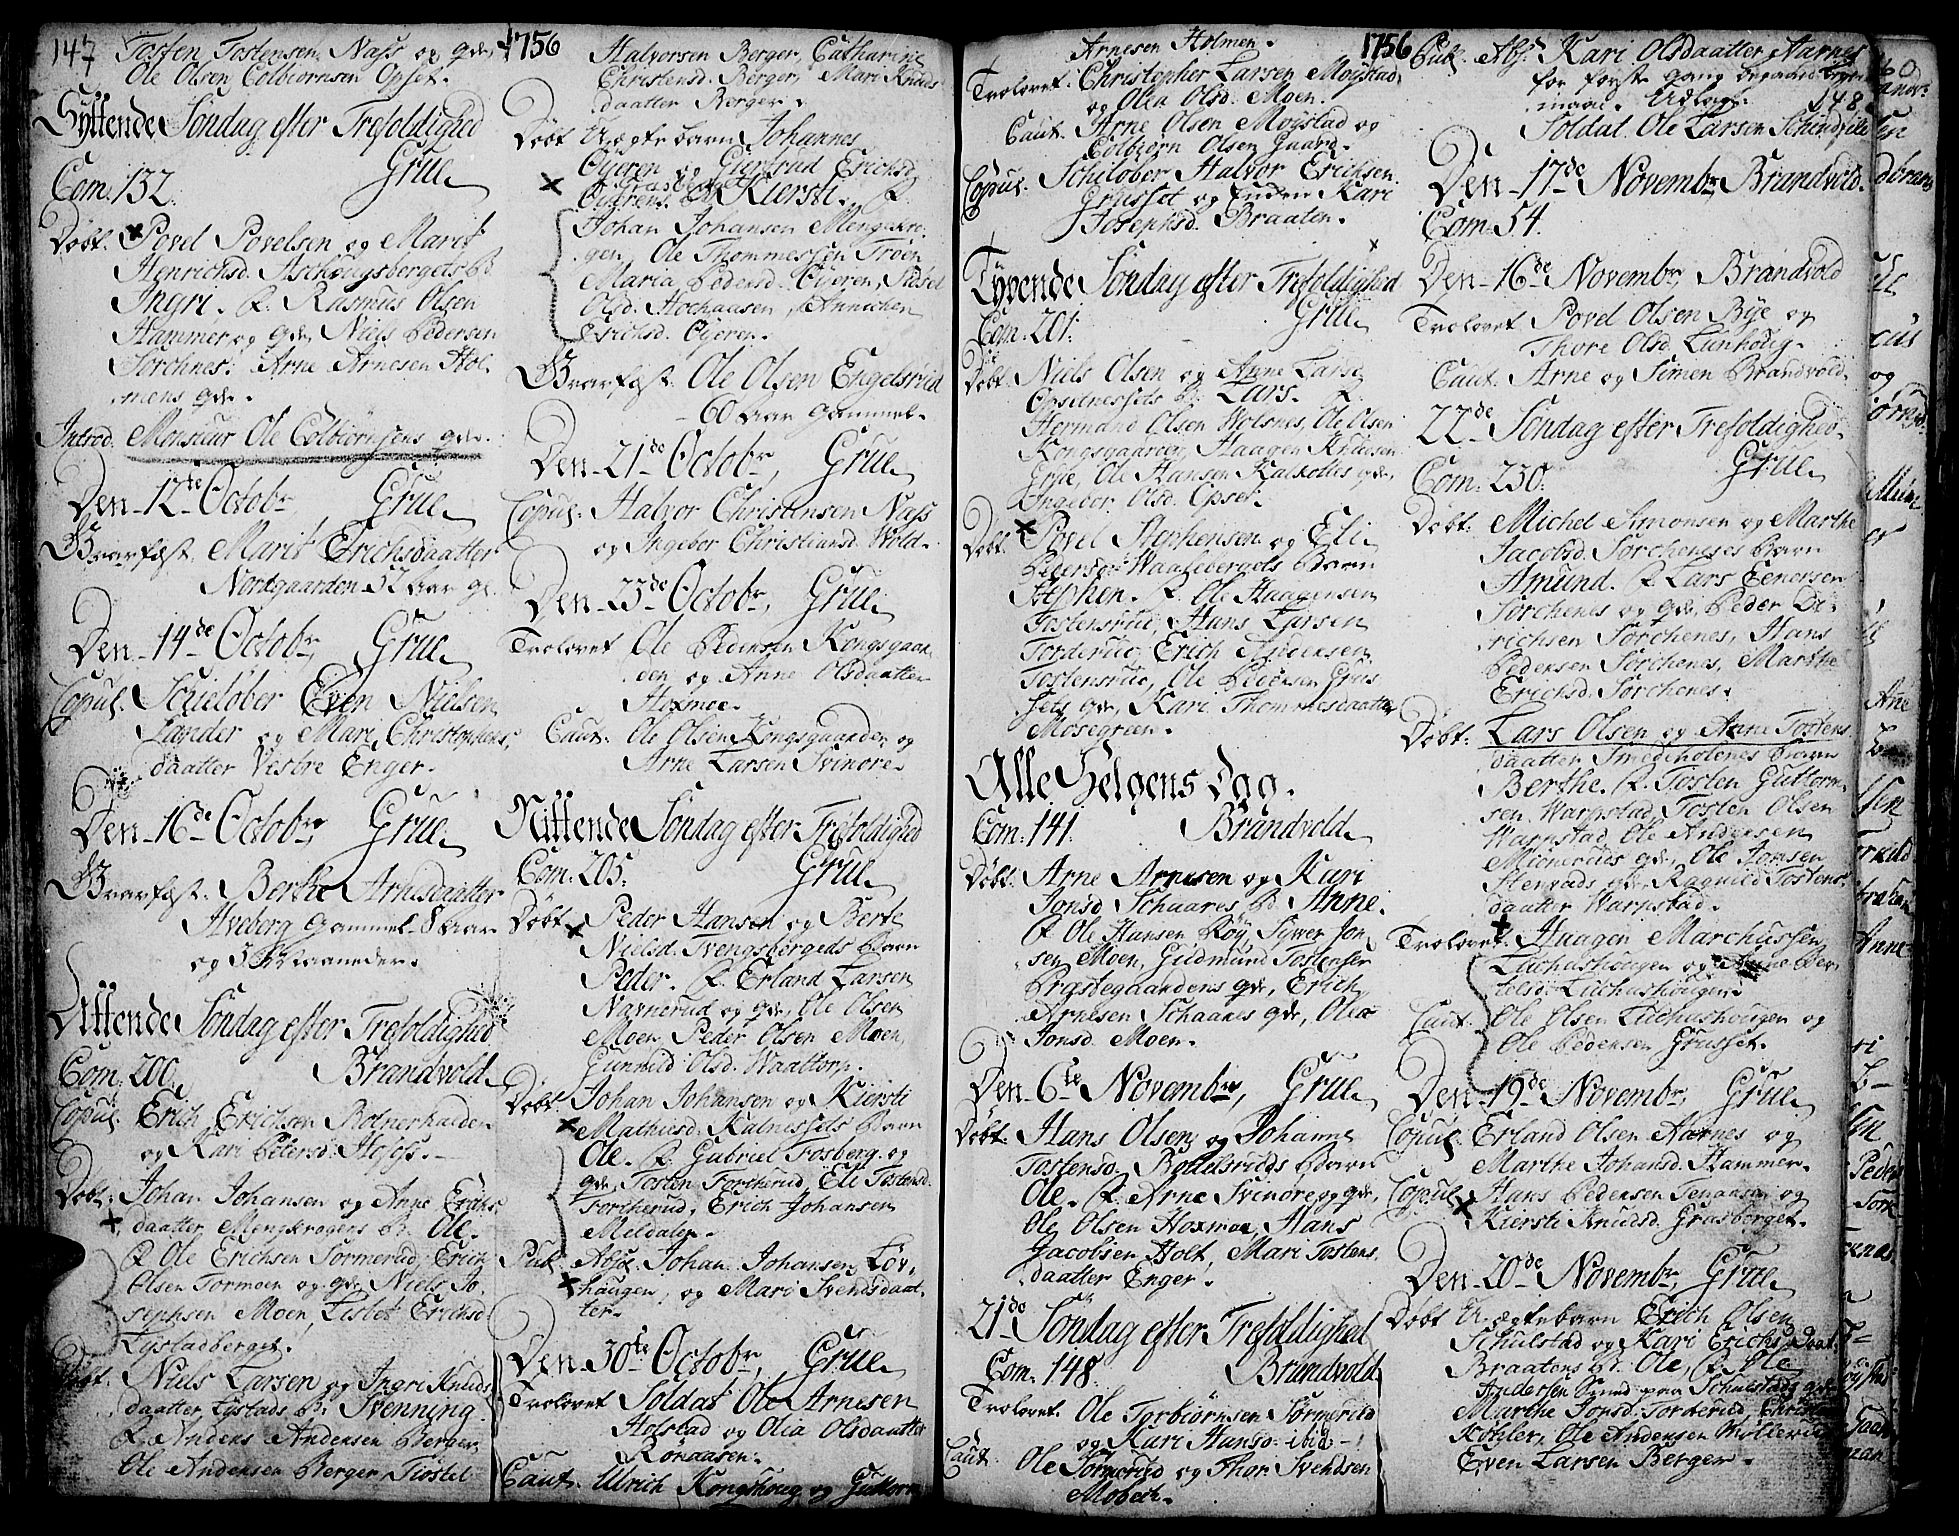 147
Tosten Tostensen Næss og qde,
Ole Olsen Colbiørnsen Opset.
Syttende Søndag efter Trefoldighed
Grue
Com. 132.
Døbt. Povel Povelsen og Marit
Henrichsd. Aschougsbergets B.
Ingri. F. Rasmus Olsen
Hammer og qde, Niels Pedersen
Sorchnes. Arne Arnesen Hol-
mens qde.
Introd. Monsieur Ole Colbiørnsens qde.
Den 12te Octobr, Grue
Grafæst. Marit Erichsdaatter
Nordgaarden 52 aar gl.
Den 14de Octobr, Grue
Copul. Schieløber Even Nielsen
Lander og Mari Christophers-
daatter Vestre Enger.
Den 16de Octobr, Grue
Grafæst. Berthe Arnesdaatter
Alveberg gammel 8 aar
og 3 Maaneder.
Attende Søndag efter Trefoldighed
Com. 200. Brandvold
Copul. Erich Erichsen Rotnerhalden
og Kari Pedersd.
Døbt. Johan Johansen og Anne Erichs-
daatter Mengkrogens B. Ole.
F. Ole Erichsen Sormerud, Erich
Olsen Tormoen og qde, Niels Jo-
sephsen Moen, Lisbet Erichsd.
Lystadberget.
Døbt. Niels Larsen og Ingri Knuds-
daatter Lystads B. Svenning.
F. Anders Andersen Berger,
Ole Andersen Berger, Tostel
1756
Halvorsen Berger, Catharina
Christensd. Berger, Mari Knuds-
daatter Berger.
Døbt Uægte barn Johannes
Oyeren og Giertrud Erichsd.
Oyerens B. Kiersti. F.
Johan Johansen Mengkro-
gen, Ole Thommessen Trøen
Maria Pedersd. Oyeren, Sidsel
Olsd. Hochaasen, Annichen
Erichsd. Oyeren.
Grafæst. Ole Olsen Engelsrud
60 aar gammel.
Den 21de Octobr, Grue
Copul. Halvor Christensen Næss
og Ingebor Christiansd. Wold.
Den 23de Octobr, Grue
Trolovet Ole Pedersen Kongsgaar-
den og Anne Olsdaatter
Hoxmoe.
Caut. Ole Olsen Kongsgaarden og
Arne Larsen Svinore.
Nittende Søndag efter Trefoldighed
Com. 205. Grue
Døbt Peder Hansen og Berte
Nielsd. Tvengsbergets Barn
Peder. F. Erland Larsen
Navnerud og qde, Ole Olsen
Moen, Peder Olsen Moen,
Gunnild Olsd. Waattorp.
Døbt. Johan Johansen og Kiersti
Mathiesd. Kalnessets Barn
Ole. F. Gabriel Fosberg og
qde, Tosten Forcherud, Eli Tostensd.
Forcherud, Erich Johansen
Meldalen.
Pub. Abs. Johan Johansen Løv-
haugen, og Mari Svendsdaat-
ter.
Den 30te Octobr, Grue
Trolovet Soldat Ole Arnesen
Holstad og Olia Olsdaatter
Rønaasen.
Caut. Ulrich Kongshoug og Guttorm
Arnesen Holmen.
Trolovet. Christopher Larsen Moystad
og Olia Olsd. Moen.
Caut. Arne Olsen Moystad og
Colbiørn Olsen Gaard.
Copul. Schiløber Halvor Erichsen
Grusset og Enchen Kari
Josephsd. Braaten.
Tyvende Søndag efter Trefoldighed
Com. 201. Grue
Døbt. Niels Olsen og Anne Larsd.
Opsetnessets B. Lars. F.
Hermand Olsen Wolsnes, Ole Olsen
Kongsgaarden, Haagen Knudsen
Grue, Ole Hansen Kalkollas qde,
Ingebor Olsd. Opset.
Døbt. Povel Stephensen og Eli
Pedersd. Waalebergets Barn
Stephen. F. Ole Haagensen
Tostensrud, Hans Larsen
Torderud, Erich Andersen
Tostensrud, Ole Pedersen Grus-
sets qde, Kari Thommesdaatter
Mosegren.
Alle Helgens Dag.
Com. 141. Brandvold
Døbt. Arne Arnesen og Kari
Jonsd. Schaares B. Anne.
F. Ole Hansen Røy, Siver Jon-
sen Moen, Gudmund Tostensen
Præstegaardens qde, Erich
Arnesen Schaares qde, Olea
Jonsd. Moen.
Den 6te Novembr, Grue
Døbt. Hans Olsen og Johanne
Tostensd. Bottelsruds Barn
Ole. F. Arne Svinore og qde,
Ole Olsen Hoxmoe, Hans
Jacobsen Holt, Mari Tostens-
daatter Enger.
21de Søndag efter Trefoldighed
Com. 148. Brandvold
Trolovet. Ole Torbiørnsen Sormerud
og Kari Hansd. ibid
Caut. Ole Sormerud og Thor Svendsen
Mobech.
1756
Pub. Abs. Kari Olsdaatter Aarnes
for første gang begaaed Leyer-
maal. Udlagt. 148
Soldat Ole Larsen
Den 17de Novembr, Brandvold.
Com. 54.
Den 16de Novembr, Brandvold
Trolovet Povel Olsen Bye og
Thore Olsd. Lunhoug.
Caut. Arne og Simen Brandvold.
22de Søndag efter Trefoldighed
Com. 230. Grue
Døbt. Michel Simonsen og Marthe
Jacobsd. Sorchenses Barn
Amund. F. Lars Eenersen
Sorchenes og qde, Peder Di-
richsen Sorchenes, Hans
Pedersen Sorchenes, Marthe
Erichsd. Sorchenes.
Døbt. Lars Olsen og Anne Tostens-
daatter Smedholenes Barn
Berthe. F. Tosten Guttorm-
sen Warpstad, Tosten Olsen
Warpstad, Ole Andersen
qde, Ole Jonsen
qde, Ragnild Tostens-
daatter Warpstad.
Trolovet. Haagen Marchussen
Luchashougen og Anne Ber-
telsd. Luchashougen.
Caut. Ole Olsen Luchashougen og
Ole Pedersen Grusset.
Den 19de Novembr, Grue
Copul. Erland Olsen Aarnes og
Marthe Johansd. Hammer.
Copul. Hans Pedersen Tenansen og
Kiersti Knudsd. Grasberget.
Den 20de Novembr, Grue
Døbt Uægtebarn Erich Olsen
Schulstad og Kari Erichsdaat.
Braatens B. Ole. F. Ole
Andersen Smed paa Schulstads qde,
Marthe Jonsd. Torkerud, Christian
Køhler, Ole Andersen
Even Larsen Berger.